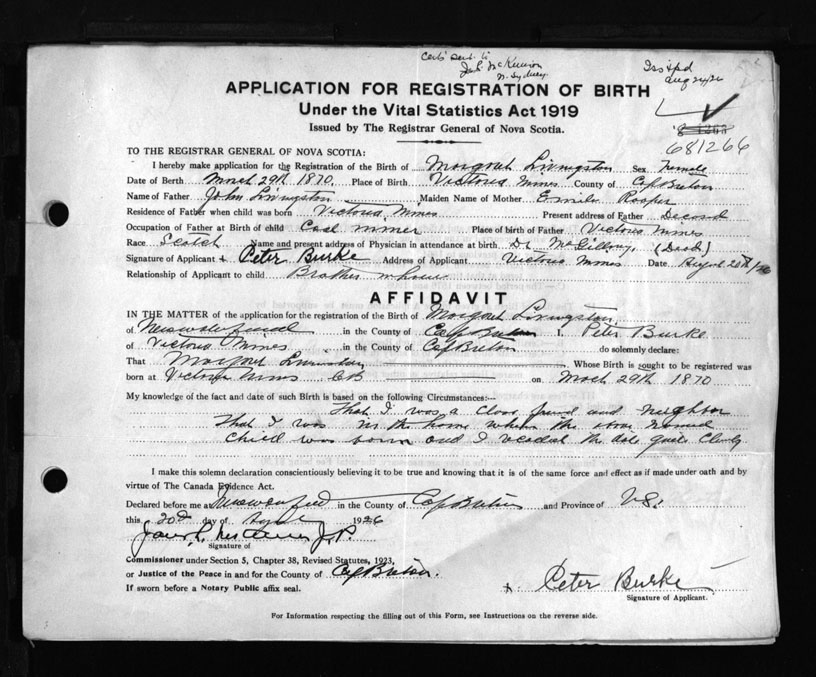 Certs sent to
N. Sydney
Aug 24/26
APPLICATION FOR REGISTRATION OF BIRTH
Under the Vital Statistics Act 1919
Issued by The Registrar General of Nova Scotia.
681266
TO THE REGISTRAR GENERAL OF NOVA SCOTIA:
I hereby make application for the Registration of the Birth of Margaret Livingston Sex Female
Date of Berth March 29th 1870. Place of Birth Victoria Mines County of Cap Breton
Name of Father John Livingston Maiden Name of Mother Roper
Residence of Father when child was born Victoria Mines Present address of Father
Occupation of Father at Birth of child Coal Place of birth of Father Victoria Mines
Race Scotch Name and present address of Physician in attendance at birth Dr (Dead)
Signature of Applicant x Peter Burke Address of Applicant Victoria Mines Date August 20th/26
Relationship of Applicant to child Brother
AFFIDAVIT
IN THE MATTER of the application for the registration of the Birth of Margaret Livingston
of in the County of Cap Breton I, Peter Burke
of Victoria Mines in the County of Cap Breton do solemnly declare:
That Margaret Livingston Whose Birth is sought to be registered was
born at Victoria Mines CB on March 29th 1870
My knowledge of the fact and date of such Birth is based on the following Circumstances:—
That I was a close friend and Neighbor
That I was in the home when the above named
child was born and I the date quite
I make this solemn declaration conscientiously believing it to be true and knowing that it is of the same force and effect as if made under oath and by
virtue of The Canada Evidence Act.
Declared before me at in the County of Cap Breton and Province of N.S.
this 20th day of 1926
J.P.
Signature of
Commissioner under Section 5, Chapter 38, Revised Statutes, 1923,
or Justice of the Peace in and for the County of Cap Breton.
If sworn before a Notary Public affix seal.
x Peter Burke
Signature of Applicant.
For Information respecting the filling out of this Form, see Instructions on the reverse side.